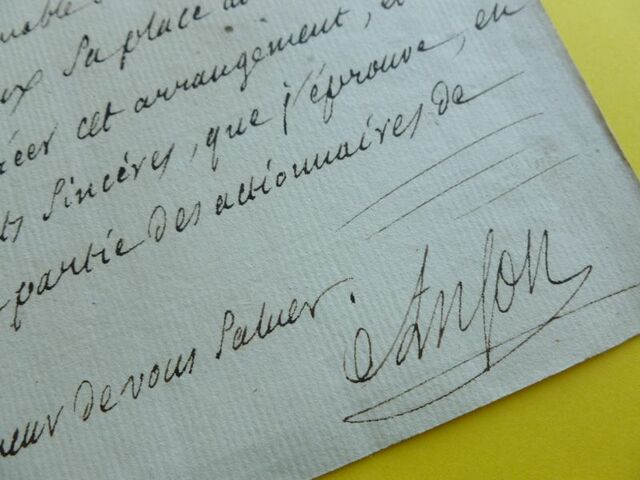 sa place
cet arrangement, et
sincères, que j'éprouve, en
partie des actionnaires de
de vous saluer.
Anson